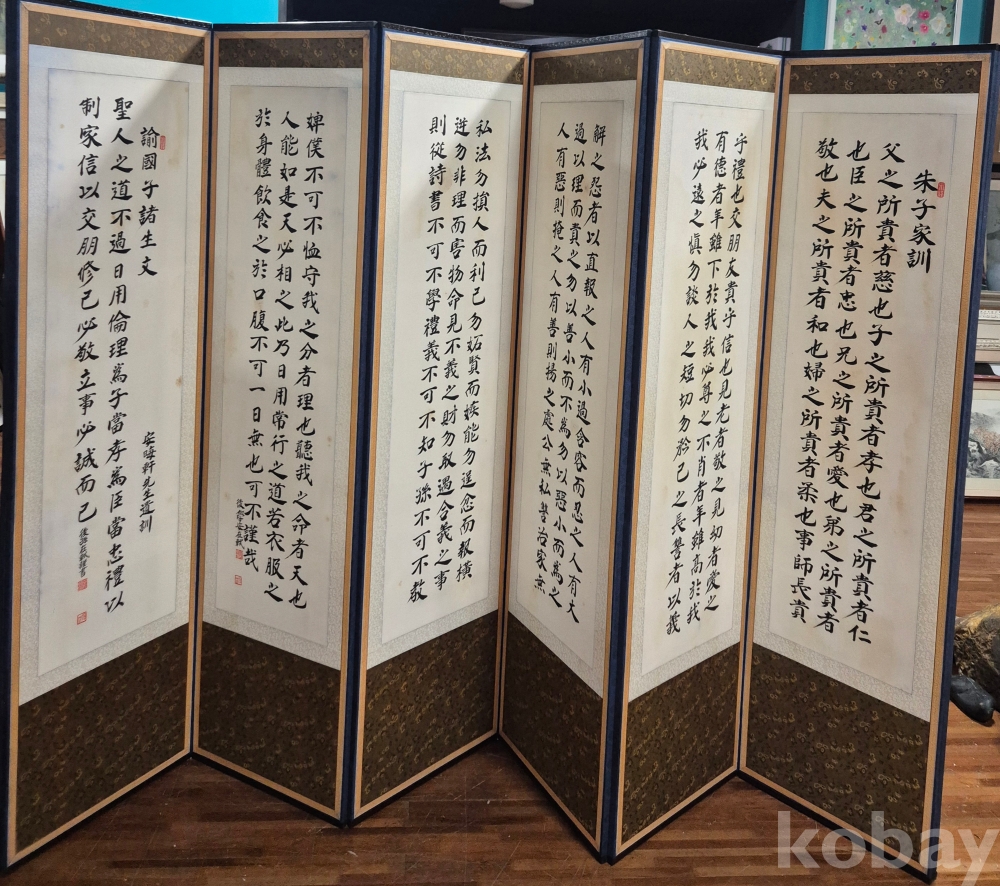 朱子家訓
父之所貴者慈也子之所貴者孝也君之所貴者仁
也臣之所貴者忠也兄之所貴者愛也弟之所貴者
敬也夫之所貴者和也婦之所貴者柔也事師長貴
乎禮也交朋友貴乎信也見老者敬之見幼者愛之
有德者年雖下於我我必尊之不肖者年雖高於我
我必遠之慎勿談人之短切勿矜己之長讐者以義
解之怨者以直報之人有小過含容而忍之人有大
過以理而責之勿以善小而不為勿以惡小而為之
人有惡則掩之人有善則揚之處公無私讐治家無
私法勿損人而利己勿妬賢而嫉能勿逞忿而報橫
逆勿非理而害物命見不義之財勿取遇合義之事
則從詩書不可不學禮義不可不知子孫不可不教
婢僕不可不恤守我之分者理也聽我之命者天也
人能如是天必相之此乃日用常行之道若衣服之
於身體飲食之於口腹不可一日無也可不謹哉
諭國子諸生文 安晦軒先生遺訓
聖人之道不過日用倫理為子當孝為臣當忠禮以
制家信以交朋修己必敬立事必誠而已
kobay